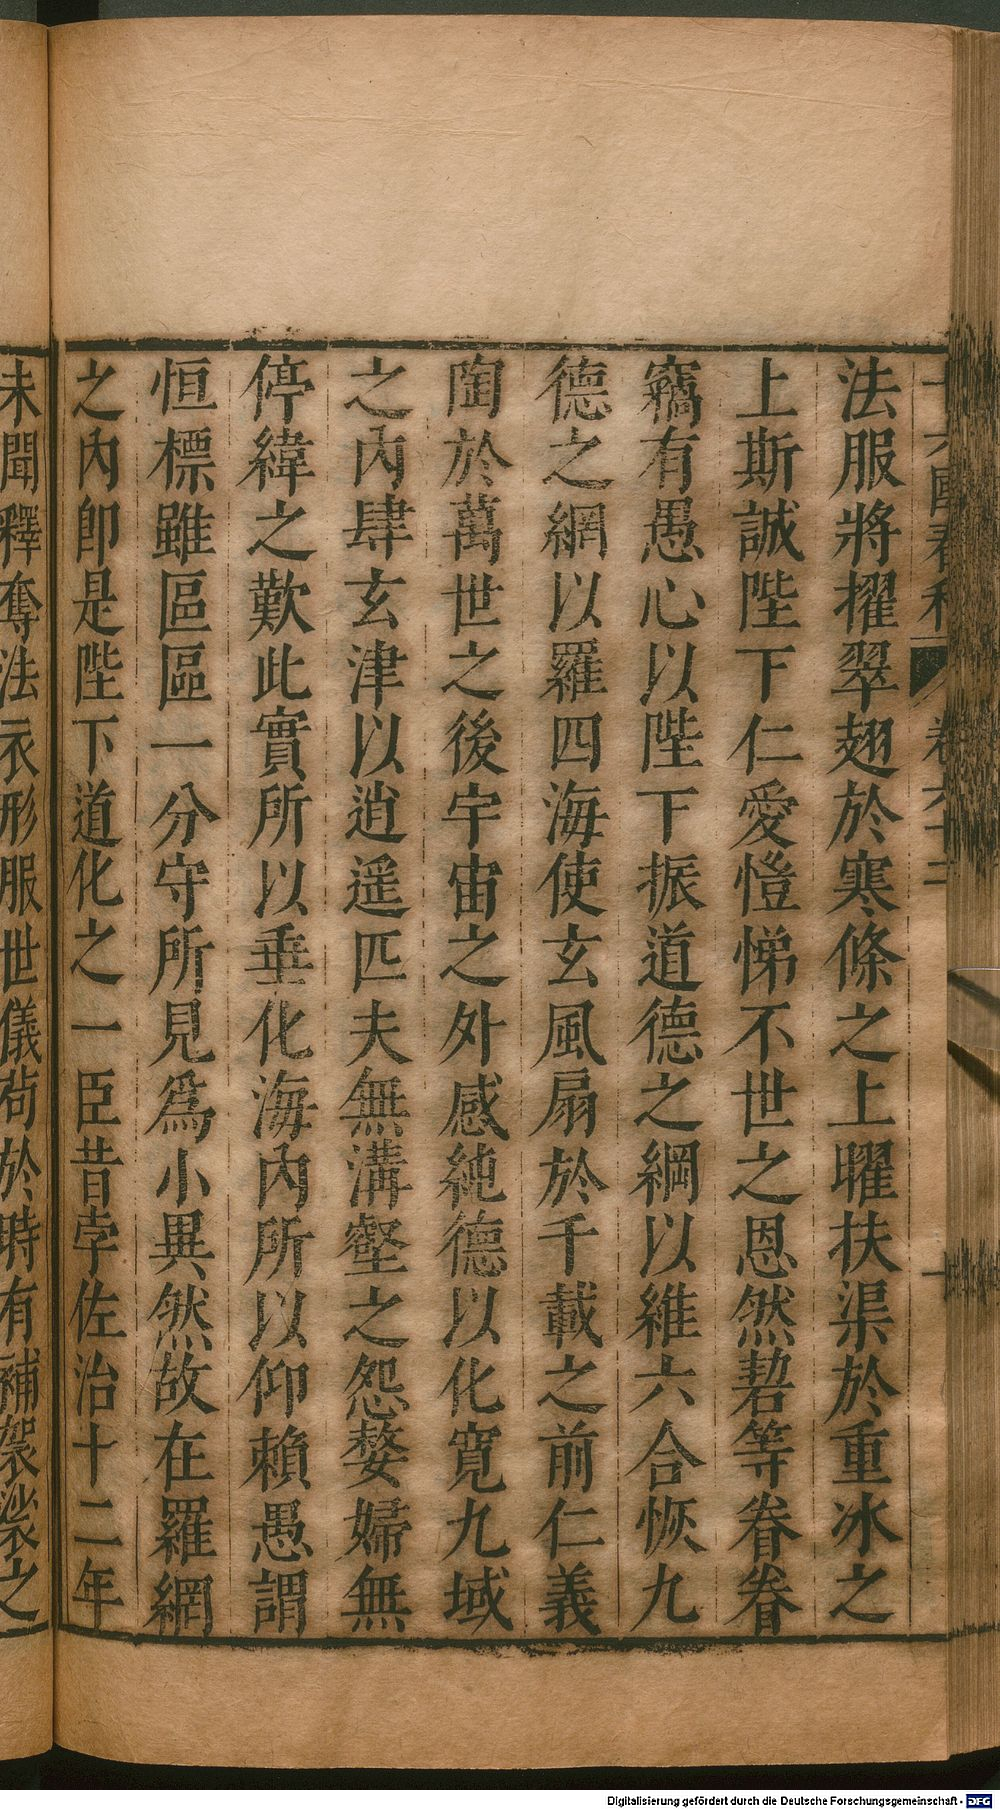 十六國春秋 卷六十二
法服將擢翠翅於寒條之上曜扶渠於重冰之
上斯誠陛下仁愛愷悌不世之恩然䂮等眷眷
竊有愚心以陛下振道德之綱以維六合恢九
德之網以羅四海使玄風扇於千載之前仁義
陶於萬世之後宇宙之外感純德以化寬九域
之內肆玄津以逍遥匹夫無溝壑之怨嫠婦無
停緯之歎此實所以垂化海內所以仰賴愚謂
恒標雖區區一分守所見為小異然故在羅網
之內即是陛下道化之一臣昔孛佐治十二年
未聞釋奪法衣形服世儀苟於時有補袈裟之
Digitalisierung gefördert durch die Deutsche Forschungsgemeinschaft - DFG